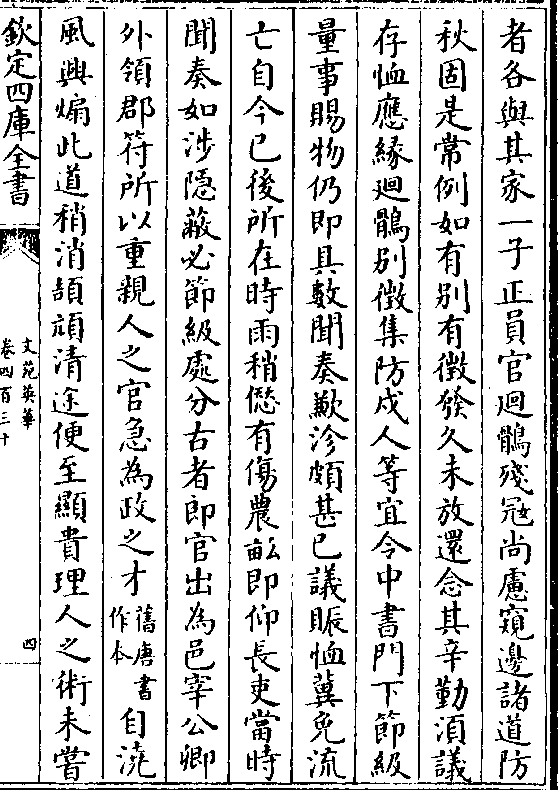 者各與其家一子正員官廻鶻殘冦尚慮窺邊諸道防
秋固是常例如有別有徵發久未放還念其辛勤湏議
存恤應緣廻鶻別徵集防戍人等宜令中書門下節級
量事賜物仍即具數聞奏歉沴頗甚已議賑恤冀免流
亡自今已後所在時雨稍愆有傷農畝即仰長吏當時
聞奏如涉隱蔽必節級處分古者郎官出為邑宰公卿
外領郡符所以重親人之官急為政之才舊唐書作本自澆
風興煽此道稍消頡頏清途便至顯貴理人之術未嘗
欽定四庫全書
文苑英華
卷四百三十
四